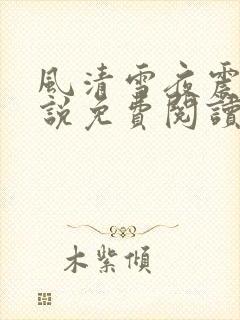 風清雪夜震
說免費閱讀
木紫傾